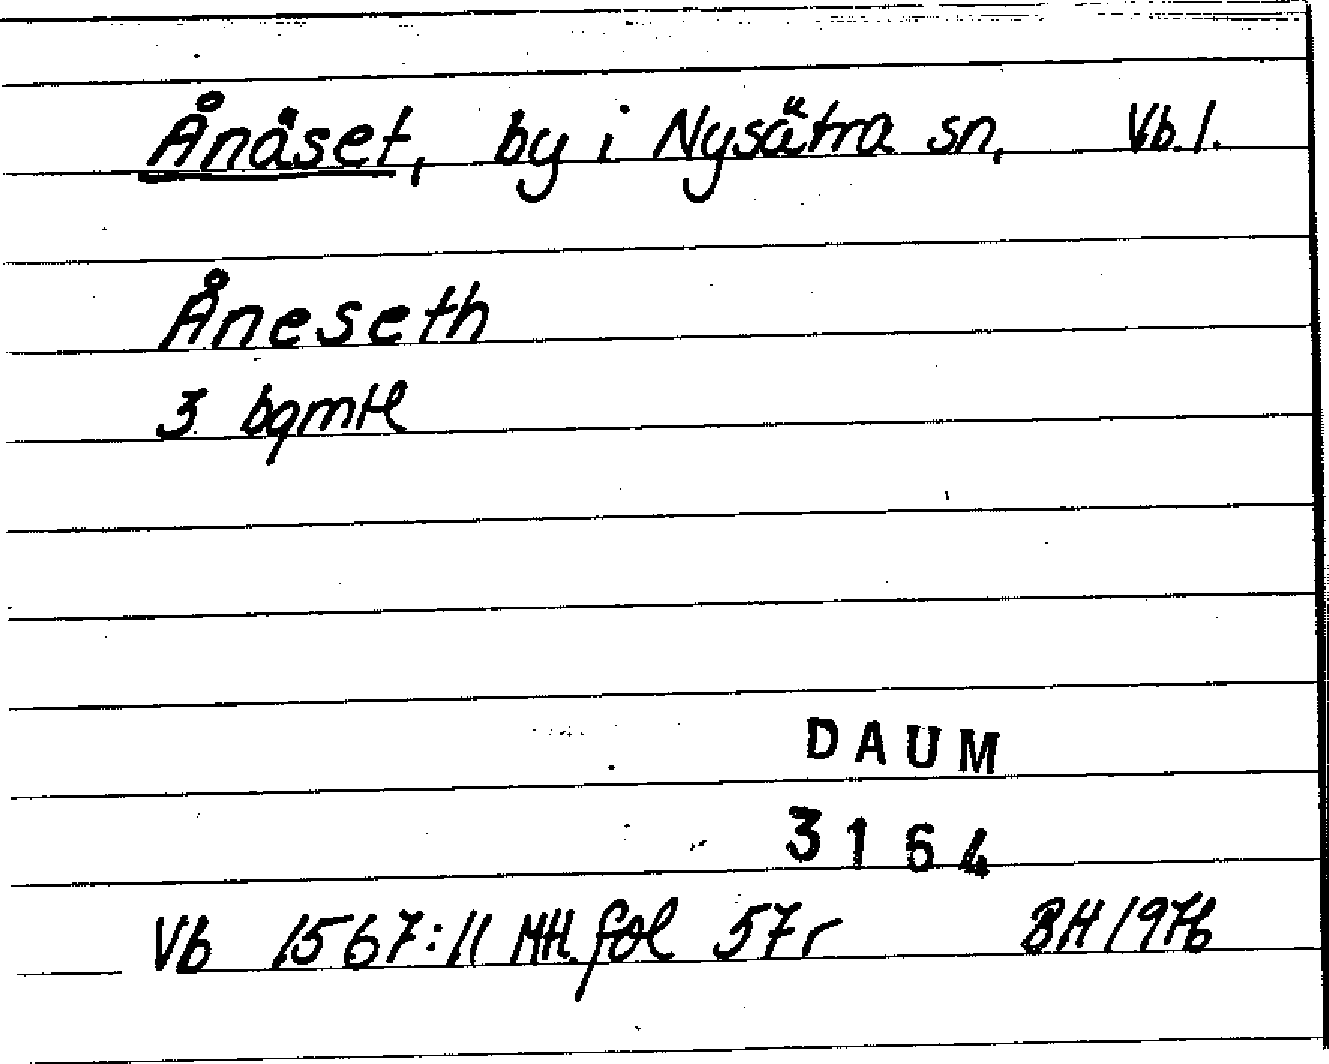 Ånäset, by i Nysätra sn, Vb. l.
Åneseth
3 bqmtl
DAUM
3164
Vb 1567:11 MH. fol 57r BH 1976